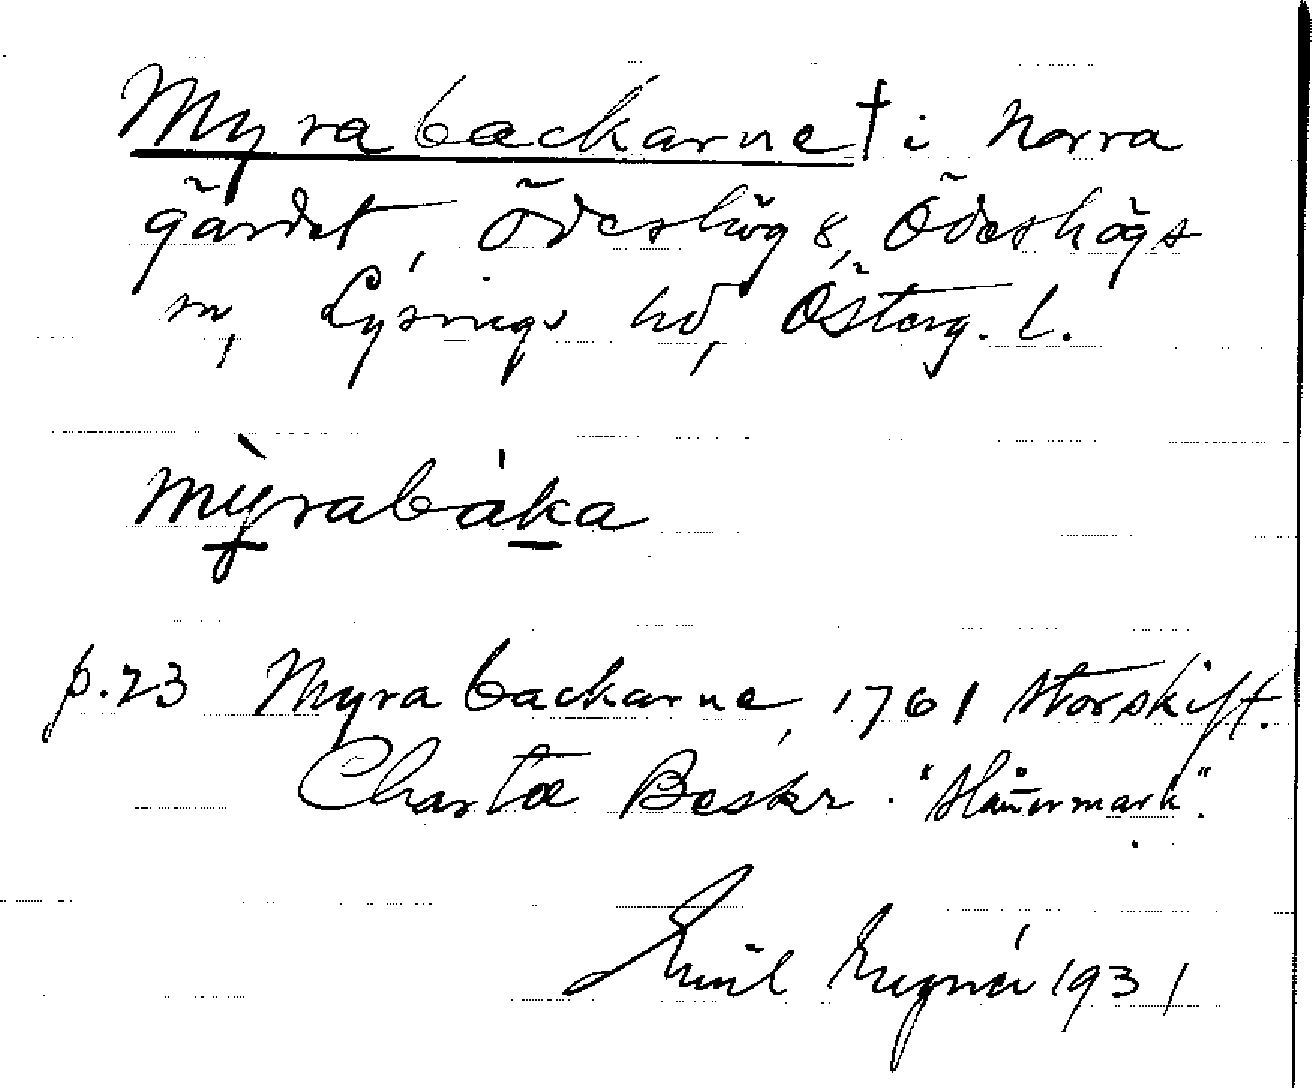 Myrabackarne † i Norra
gärdet, Ödeshög 8, Ödeshögs
sn, Lysings hd, Österg. l.
mỳrabáka
p. 23 Myrabackarne, 1761 Storskift.
Charta Beskr.
Emil 1931